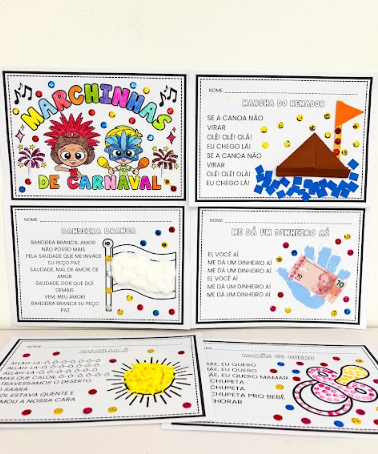 MARCHINHAS
DE CARNAVAL
NOME:
MARCHA DO REMADOR
SE A CANOA NÃO
VIRAR
OLÊ! OLÊ! OLÁ!
EU CHEGO LÁ!
SE A CANOA NÃO
VIRAR
OLÊ! OLÊ! OLÁ!
EU CHEGO LÁ!
NOME:
BANDEIRA BRANCA
BANDEIRA BRANCA, AMOR
NÃO POSSO MAIS
PELA SAUDADE QUE ME INVADE
EU PEÇO PAZ
SAUDADE, MAL DE AMOR, DE
AMOR
SAUDADE, DOR QUE DÓI
DEMAIS
VEM, MEU AMOR!
BANDEIRA BRANCA EU PEÇO
PAZ
NOME:
ME DÁ UM DINHEIRO AÍ
EI, VOCÊ AÍ
ME DÁ UM DINHEIRO AÍ
ME DÁ UM DINHEIRO AÍ
EI, VOCÊ AÍ
ME DÁ UM DINHEIRO AÍ
ME DÁ UM DINHEIRO AÍ
10
NOME:
ALLAH-LÁ-Ô, Ô-Ô-Ô-Ô-Ô-Ô
MAS QUE CALOR, Ô-Ô-Ô-Ô-Ô-Ô
ATRAVESSAMOS O DESERTO
SAARA
SOL ESTAVA QUENTE E
NOSSA CARA
NOME:
MAMÃE EU QUERO
MÃE, EU QUERO
MÃE, EU QUERO MAMAR
CHUPETA
CHUPETA
CHUPETA PRO BEBÊ
CHORAR